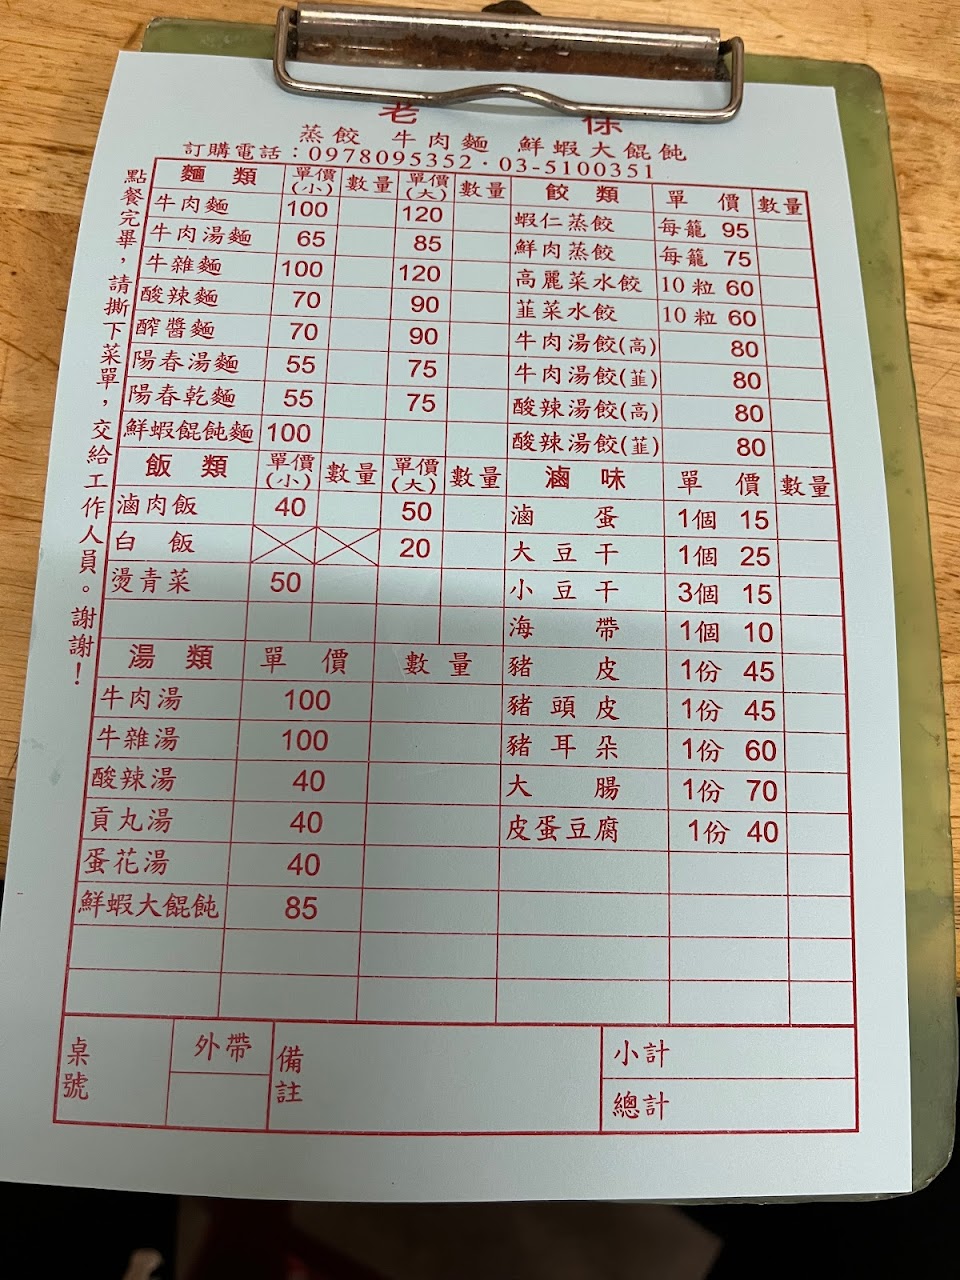 老 徐
蒸餃 牛肉麵 鮮蝦大餛飩
訂購電話：0978095352．03-5100351
點餐完畢，請撕下菜單，交給工作人員。謝謝！
麵類 單價(小) 數量 單價(大) 數量
牛肉麵 100 120
牛肉湯麵 65 85
牛雜麵 100 120
酸辣麵 70 90
醡醬麵 70 90
陽春湯麵 55 75
陽春乾麵 55 75
鮮蝦餛飩麵 100
飯類 單價(小) 數量 單價(大) 數量
滷肉飯 40 50
白飯 20
燙青菜 50
湯類 單價 數量
牛肉湯 100
牛雜湯 100
酸辣湯 40
貢丸湯 40
蛋花湯 40
鮮蝦大餛飩 85
餃類 單價 數量
蝦仁蒸餃 每籠 95
鮮肉蒸餃 每籠 75
高麗菜水餃 10粒 60
韮菜水餃 10粒 60
牛肉湯餃(高) 80
牛肉湯餃(韮) 80
酸辣湯餃(高) 80
酸辣湯餃(韮) 80
滷味 單價 數量
滷蛋 1個 15
大豆干 1個 25
小豆干 3個 15
海帶 1個 10
豬皮 1份 45
豬頭皮 1份 45
豬耳朵 1份 60
大腸 1份 70
皮蛋豆腐 1份 40
桌號
外帶
備註
小計
總計